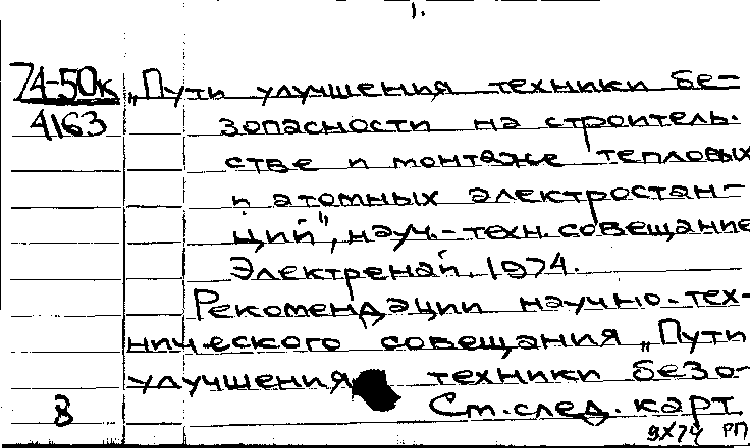 1.
74-50к „Пути улучшения техники бе-
4163 зопасности на строитель.
стве и монтаже тепловых
и атомных электростан-
ций", науч.-техн. совещание
Электренай. 1974.
Рекомендации научно-тех-
нического совещания „Пути
улучшения техники безо-
В См. след. карт.
9X74 РП